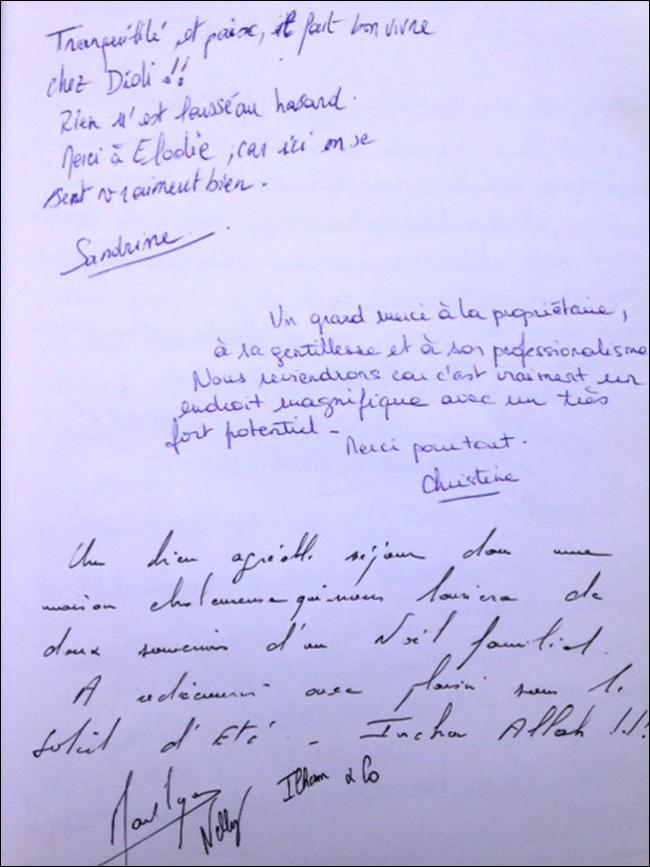 Tranquillité et paix, il fait bon vivre
chez Didi !!
Rien n'est laissé au hasard.
Merci à Elodie, car ici on se
sent vraiment bien.
Sandrine
Un grand merci à la propriétaire,
à sa gentillesse et à son professionalisme
Nous reviendrons car c'est vraiment un
endroit magnifique avec un très
fort potentiel -
Merci pour tout.
Christine
Un bien agréable séjour dans une
maison chaleureuse qui nous laissera de
doux souvenirs d'un Noël familial.
A redécouvrir avec plaisir sous le
Soleil d'Eté - Incha Allah !!!
Nelly Ilham & Co